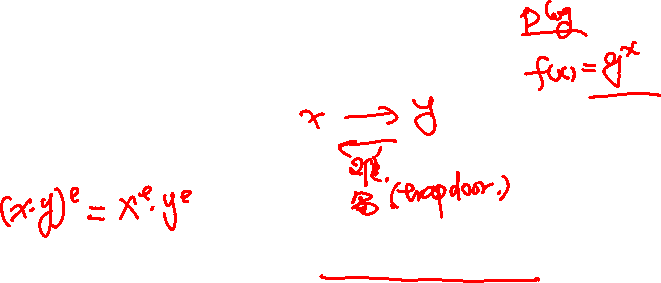 f(x) = g^x
x → y
(trapdoor.)
(x·y)^e = x^e · y^e